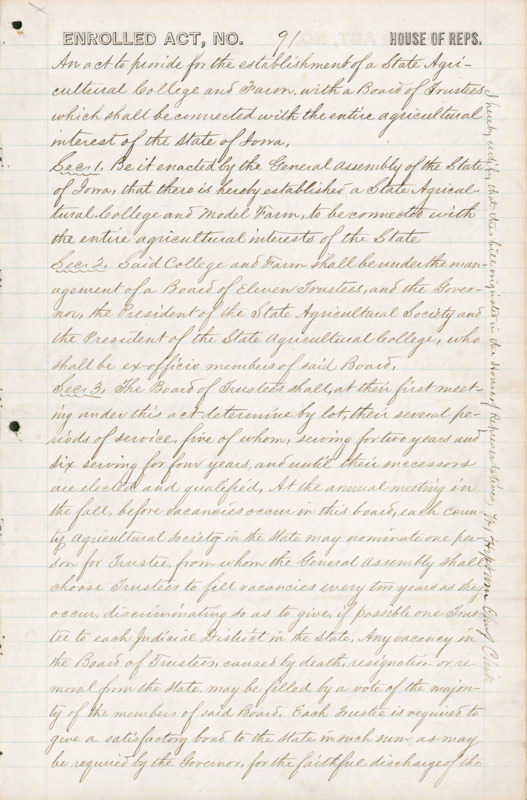 ENROLLED ACT, NO. 91 HOUSE OF REPS.
An act to provide for the establishment of a State Agri-
cultural College and Farm, with a Board of Trustees
which shall be connected with the entire agricultural
interest of the State of Iowa,
Sec. 1. Be it enacted by the General Assembly of the State
of Iowa, that there is hereby established a State Agricul-
tural College and Model Farm, to be connected with
the entire agricultural interests of the State
Sec. 2. Said College and Farm shall be under the man-
agement of a Board of Eleven Trustees, and the Gover-
nor, the President of the State Agricultural Society and
the President of the State Agricultural College, who
shall be ex-officio members of said Board,
Sec. 3. The Board of Trustees shall, at their first meet-
ing under this act determine by lot, their several pe-
riods of service, five of whom, serving for two years and
six serving for four years, and until their successors
are elected and qualified, At the annual meeting in
the fall, before vacancies occur in this board, each coun-
ty Agricultural Society in the State may nominate one per-
son for Trustee, from whom the General Assembly shall
choose Trustees to fill vacancies every two years as they
occur, discriminating so as to give, if possible one Trus-
tee to each Judicial District in the State. Any vacancy in
the Board of Trustees, caused by death, resignation or re-
moval from the State, may be filled by a vote of the major-
ty of the members of said Board. Each Trustee is required to
give a satisfactory bond to the State in such sum, as may
be required by the Governor, for the faithful discharge of the
I hereby certify that this bill originated in the House of Representatives, Chief Clerk